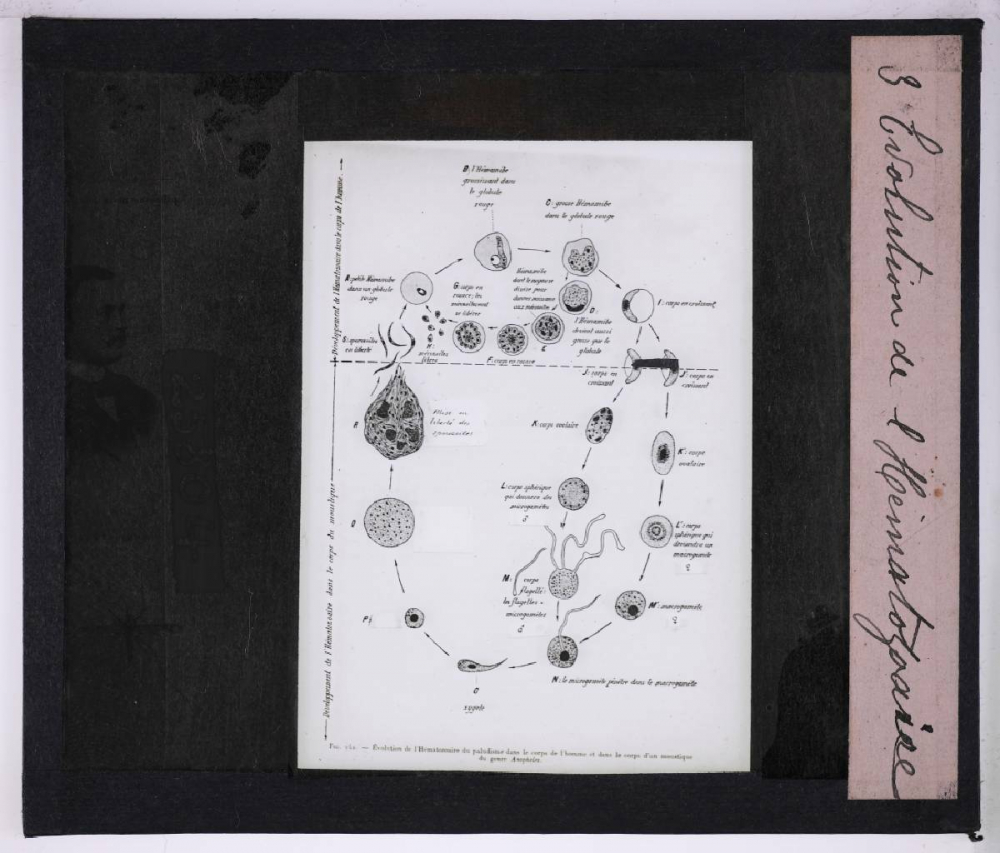 8 Evolution de l'Hématozoaire
Développement de l'Hématozoaire dans le corps de l'homme.
Développement de l'Hématozoaire dans le corps du moustique
B: l'Hémamibe
grossissant dans
le globule
rouge
C: grosse Hémamibe
dans le globule rouge
A: petite Hémamibe
dans un globule
rouge
G: corps en
rosace; les
se libérer
Hémamibe
dont le
divisé pour
donner naissance
aux
D:
l'Hémamibe
devient aussi
grosse que le
globule
I: corps en croissant
S: sporozoïtes
en liberté
H:
libres
F: corps en rosace
E
J: corps en
croissant
J': corps en
croissant
R
Mise en
liberté des
sporozoïtes
K: corps ovalaire
K': corps
ovalaire
L: corps sphérique
qui donnera des
microgamètes
♂
L': corps
sphérique qui
deviendra un
macrogamète
♀
Q
M: corps
flagellé:
les flagelles =
microgamètes
♂
M': macrogamète
♀
P:
N: le microgamète pénètre dans le macrogamète
O
zygote
Évolution de l'Hématozoaire du paludisme dans le corps de l'homme et dans le corps d'un moustique
du genre Anophèles.